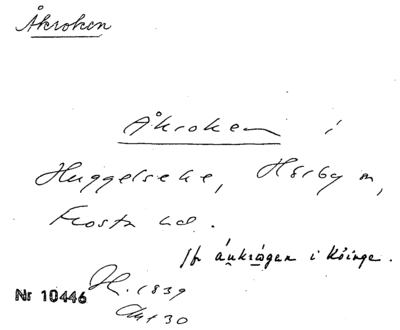 Åkroken
Åkroken i
Huggelseke, Hörby sn,
Frosta hd.
Jfr áukrågen i Köinge.
H. 1839
Nr 10446
Akt 30